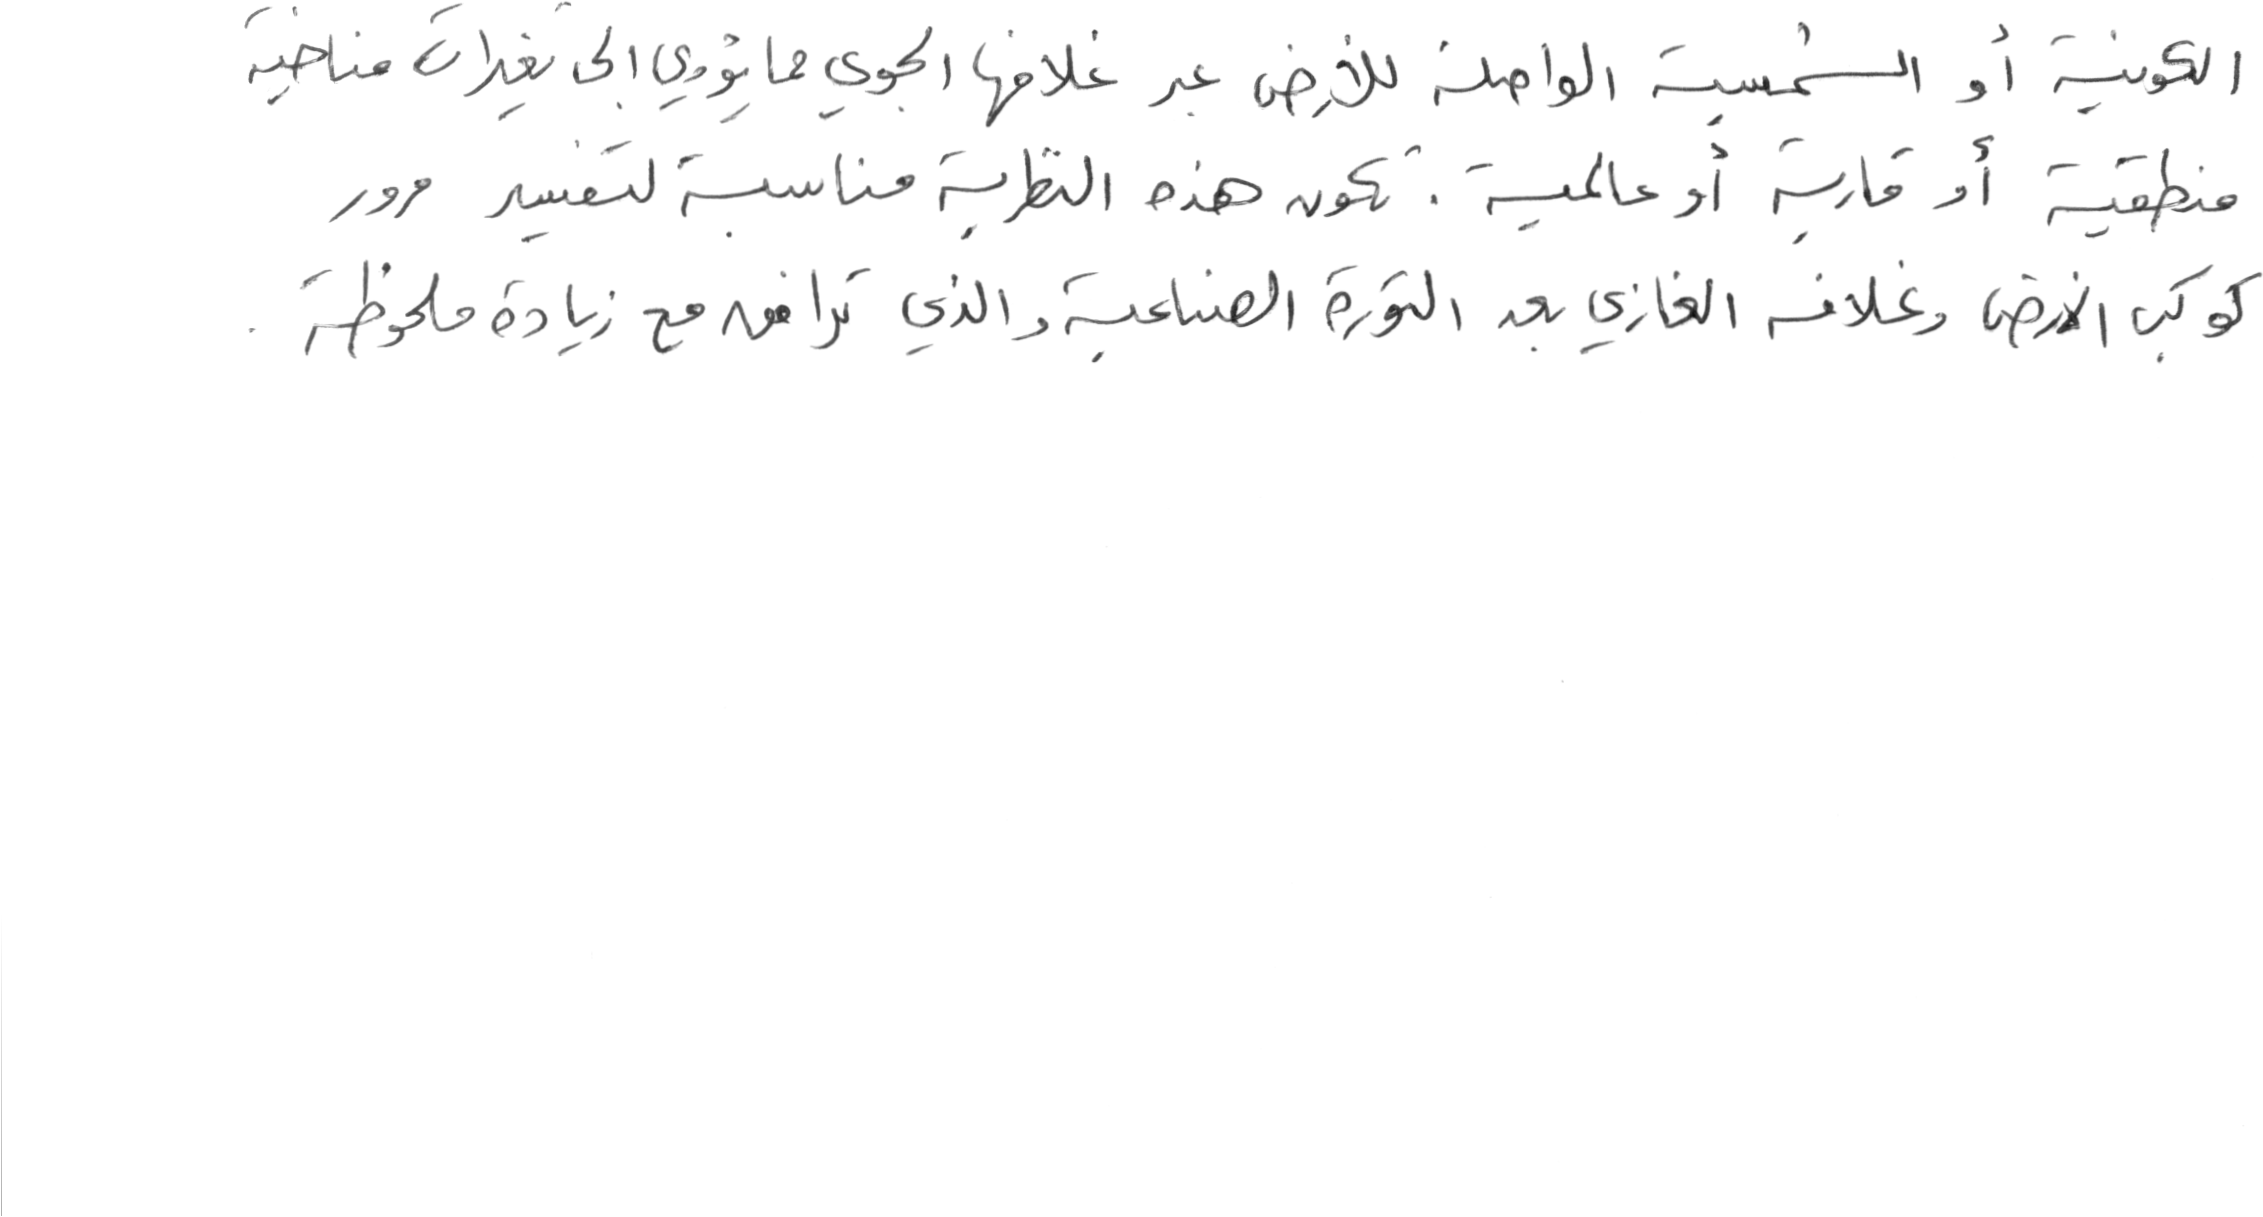 الكونية أو الشمسية الواصلة للأرض عبر غلافها الجوي مما يؤدي الى تغيرات مناخية
منطقية أو قارية أو عالمية . تكون هذه النظرية مناسبة لتفسير مرور
كوكب الارض وغلافه الغازي بعد الثورة الصناعية والذي ترافق مع زيادة ملحوظة .